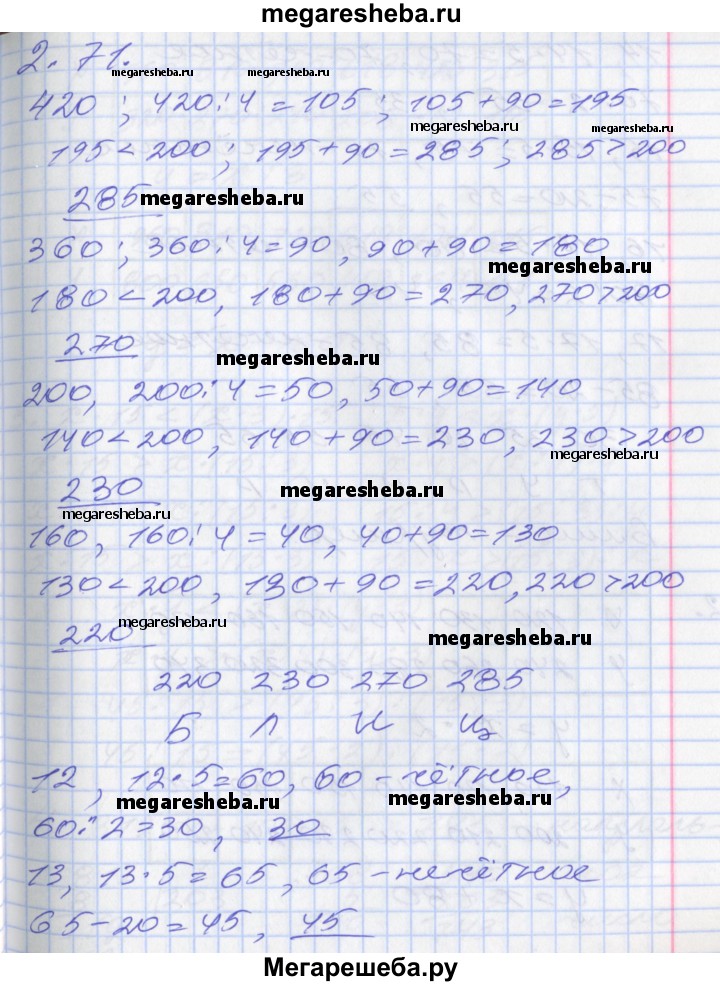 megaresheba.ru
2. 71.
megaresheba.ru megaresheba.ru
420 ; 420:4=105 ; 105+90=195
megaresheba.ru megaresheba.ru
195<200 ; 195+90=285 ; 285>200
285 megaresheba.ru
360 ; 360:4=90, 90+90=180
megaresheba.ru
180<200, 180+90=270, 270>200
270 megaresheba.ru
200, 200:4=50, 50+90=140
140<200, 140+90=230, 230>200
230 megaresheba.ru
megaresheba.ru
160, 160:4=40, 40+90=130
130<200, 130+90=220, 220>200
220 megaresheba.ru megaresheba.ru
220 230 270 285
Б Л И Ц
12, 12·5=60, 60-чётное,
megaresheba.ru megaresheba.ru
60:2=30, 30
13, 13·5=65, 65-нечётное
65-20=45, 45
Мегарешеба.ру